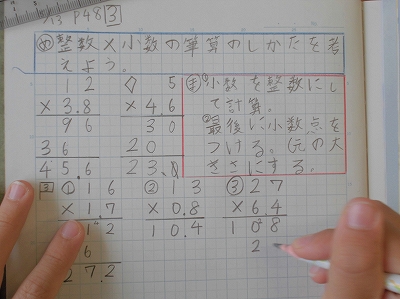 P48 3
め 整数×小数の筆算のしかたを考
えよう。
12
×3.8
96
36
45.6
◇ 5
×4.6
30
20
23.0
ま ①小数を整数にし
て計算。
②最後に小数点を
つける。(元の大
きさにする。)
3 ① 16
×1.7
112
6
27.2
② 13
×0.8
10.4
③ 27
×64
108
2